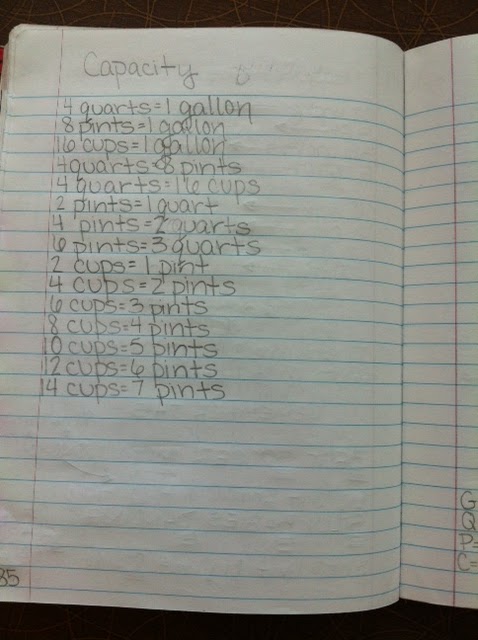 Capacity
4 quarts=1 gallon
8 pints=1 gallon
16 cups=1 gallon
4 quarts=8 pints
4 quarts=16 cups
2 pints=1 quart
4 pints=2 quarts
6 pints=3 quarts
2 cups=1 pint
4 cups=2 pints
6 cups=3 pints
8 cups=4 pints
10 cups=5 pints
12 cups=6 pints
14 cups=7 pints
35
G
Q
P=
C=